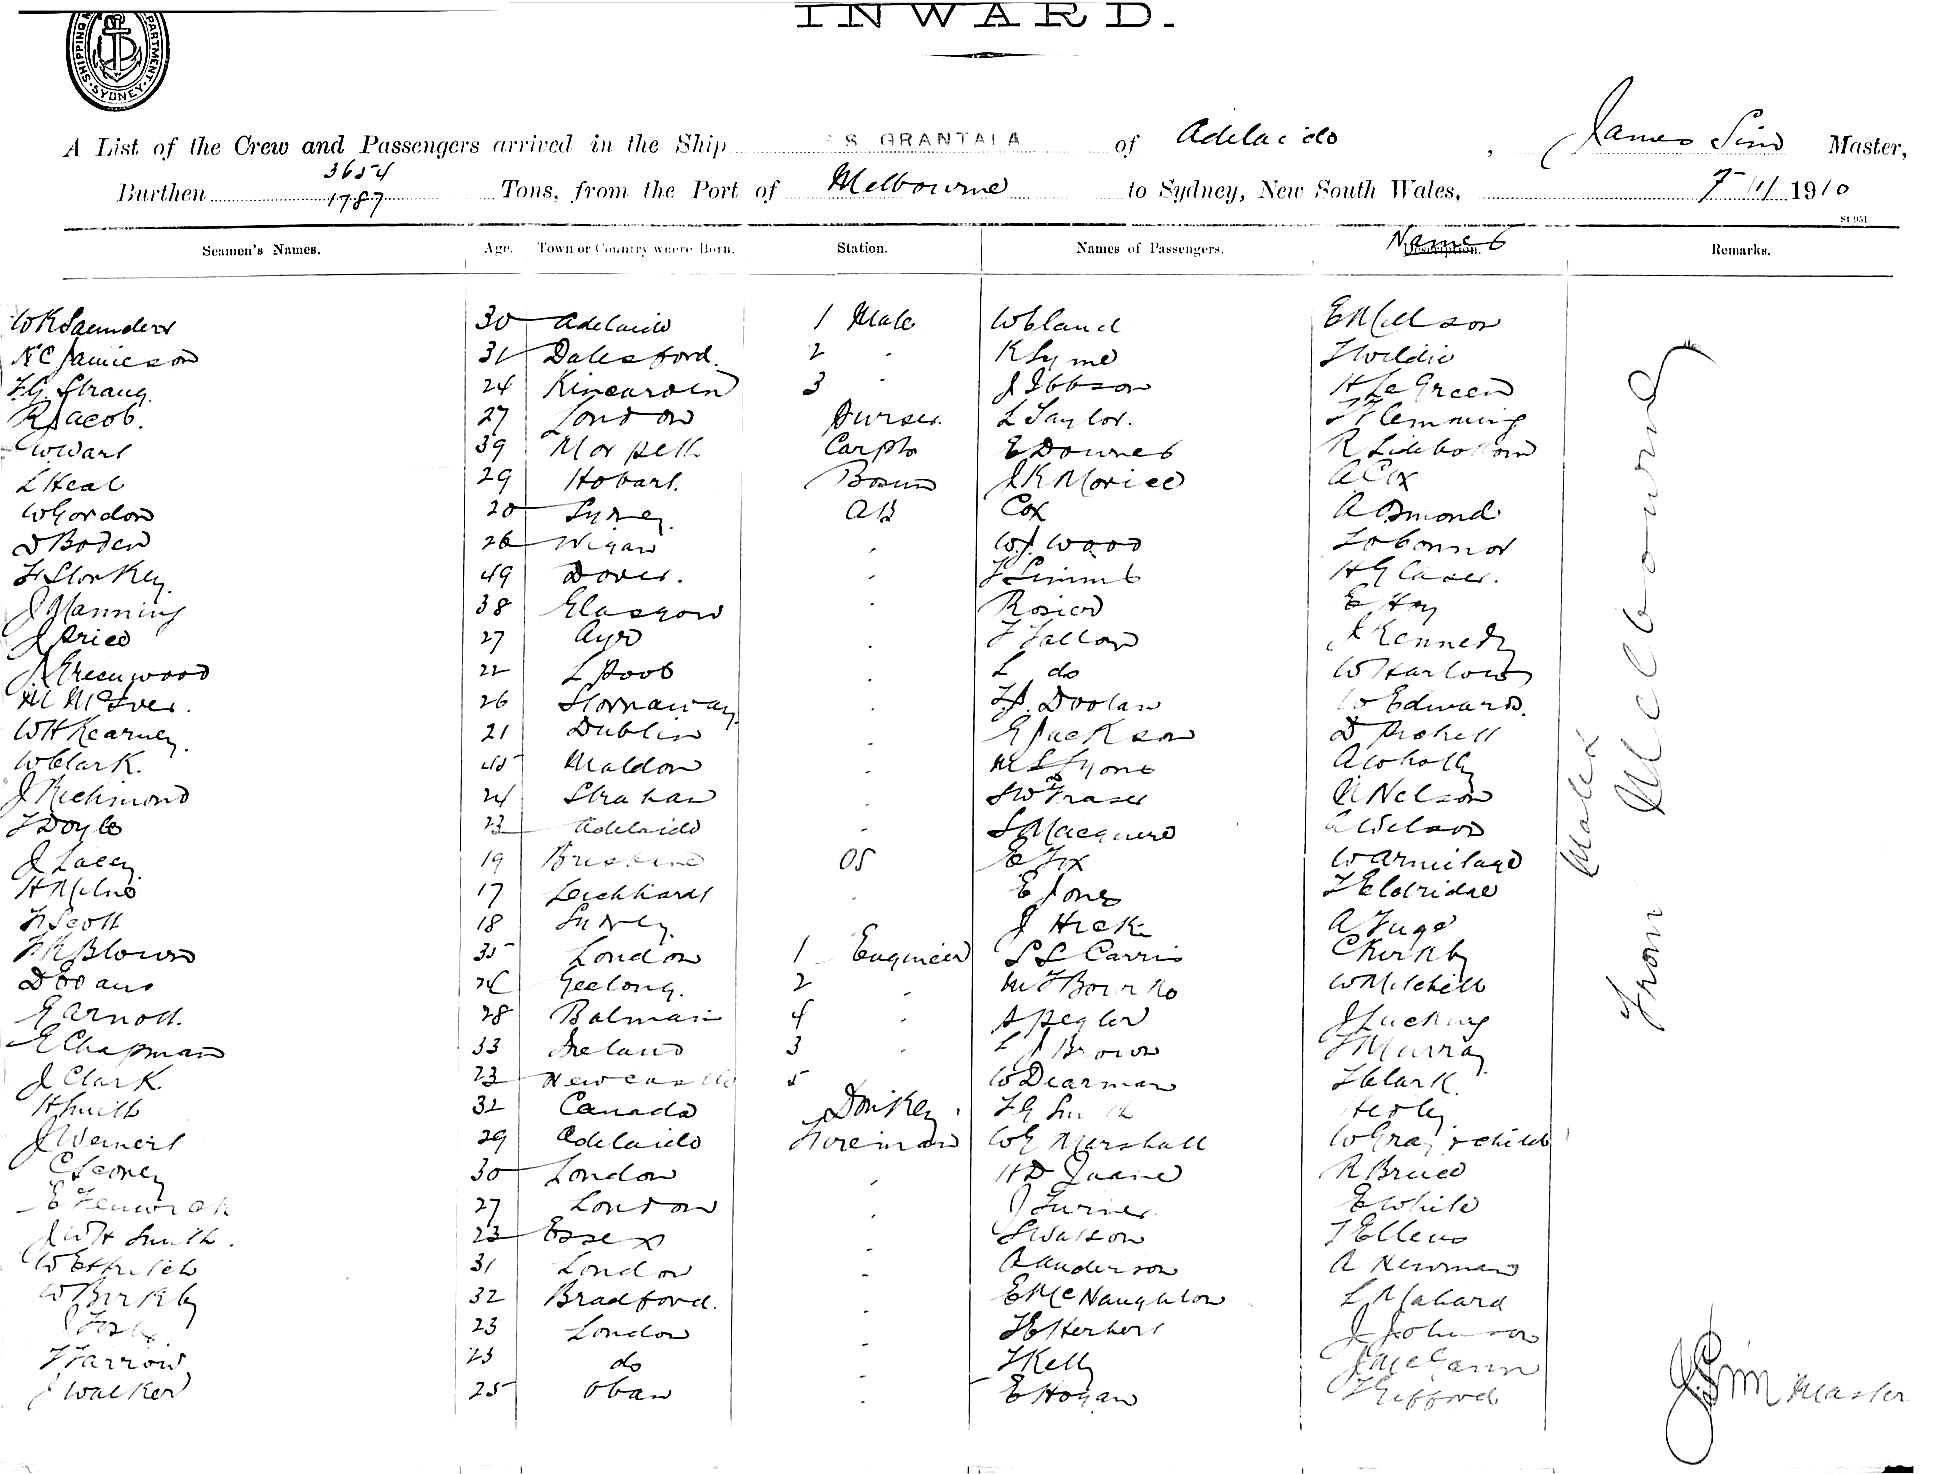 INWARD.
SHIPPING DEPARTMENT SYDNEY
A List of the Crew and Passengers arrived in the Ship S GRANTALA of Adelaide, James Sim Master,
Burthen 3654 1787 Tons, from the Port of Melbourne to Sydney, New South Wales, 7/11/1910
St 951
Seamen's Names. Age. Town or Country where Born. Station. Names of Passengers. Description. Names Remarks.
W K Saunders 30 Adelaide 1 Mate W Eland E Mellson
N C Jamieson 31 Dalesford. 2 " K Syme J Wildie
F. G. Strang. 24 Kincarden 3 " J Ibbson H Le Green
R Jacob. 27 London Purser. L Taylor. F Flemming
W Warl 39 Morpeth Carptr E Downes R Sidebottom
L Heal 29 Hobart. Bosun J K Morice A Cox
W Gordon 20 Sydney. AB Cox A Osmond
D Boden 26 Wigan " W. J. Wood J O'Connor
F Storkey. 49 Dover. " F Simms H Glaser.
J Manning 38 Glasgow " Rosier E Hay
J Price 27 Ayr " F Fallow J Kennedy
J Greenwood 22 L Pool " L do W Harlow
M McIver. 26 Stornaway. " F. J. Doolan W Edwards.
W H Kearney. 21 Dublin " E Jackson D Priskell
W Clark. 45 Maldon " M L Lyons A Wholly
J Richmond 24 Strahan " S W Fraser A Nelson
F Doyle 23 Adelaide " S Macquire A Wilson
J Lacey. 19 Brisbane OS E Fox W Armitage
H Milne 17 Leichhardt " E Jones F Eldridge
F Scott 18 Sydney. J Hicks A Fuge
F R Blown 35 London 1 Engineer S L Carris C Kirkby
D Evans 26 Geelong. 2 " M F Bourke W Mitchell
E Arnott. 28 Balmain 4 " A Pegler J Lucking
E Chapman 33 Ireland 3 " L J Brown F Murray
J Clark 23 Newcastle 5 W Dearman F Clark.
H Smith 32 Canada Donkey. F G Smith Henley
J Weinert 29 Adelaide Fireman W G Marshall W Gray & child
C Seoney 30 London " H D Quane R Bruce
E Fenwick 27 London " J Turner E White
J W H Smith. 23 Essex " S Watson F Ellens
W Ethrich 31 London " A Anderson A Newman
W Birkby 32 Bradford. " E McNaughton L Mahard
23 London " F E Herbert J Johnson
F Farrow 23 do " F Kelly J McGann
J Walker 25 Oban " E Hogan F Gifford
Males
From Melbourne
J. Sim Master